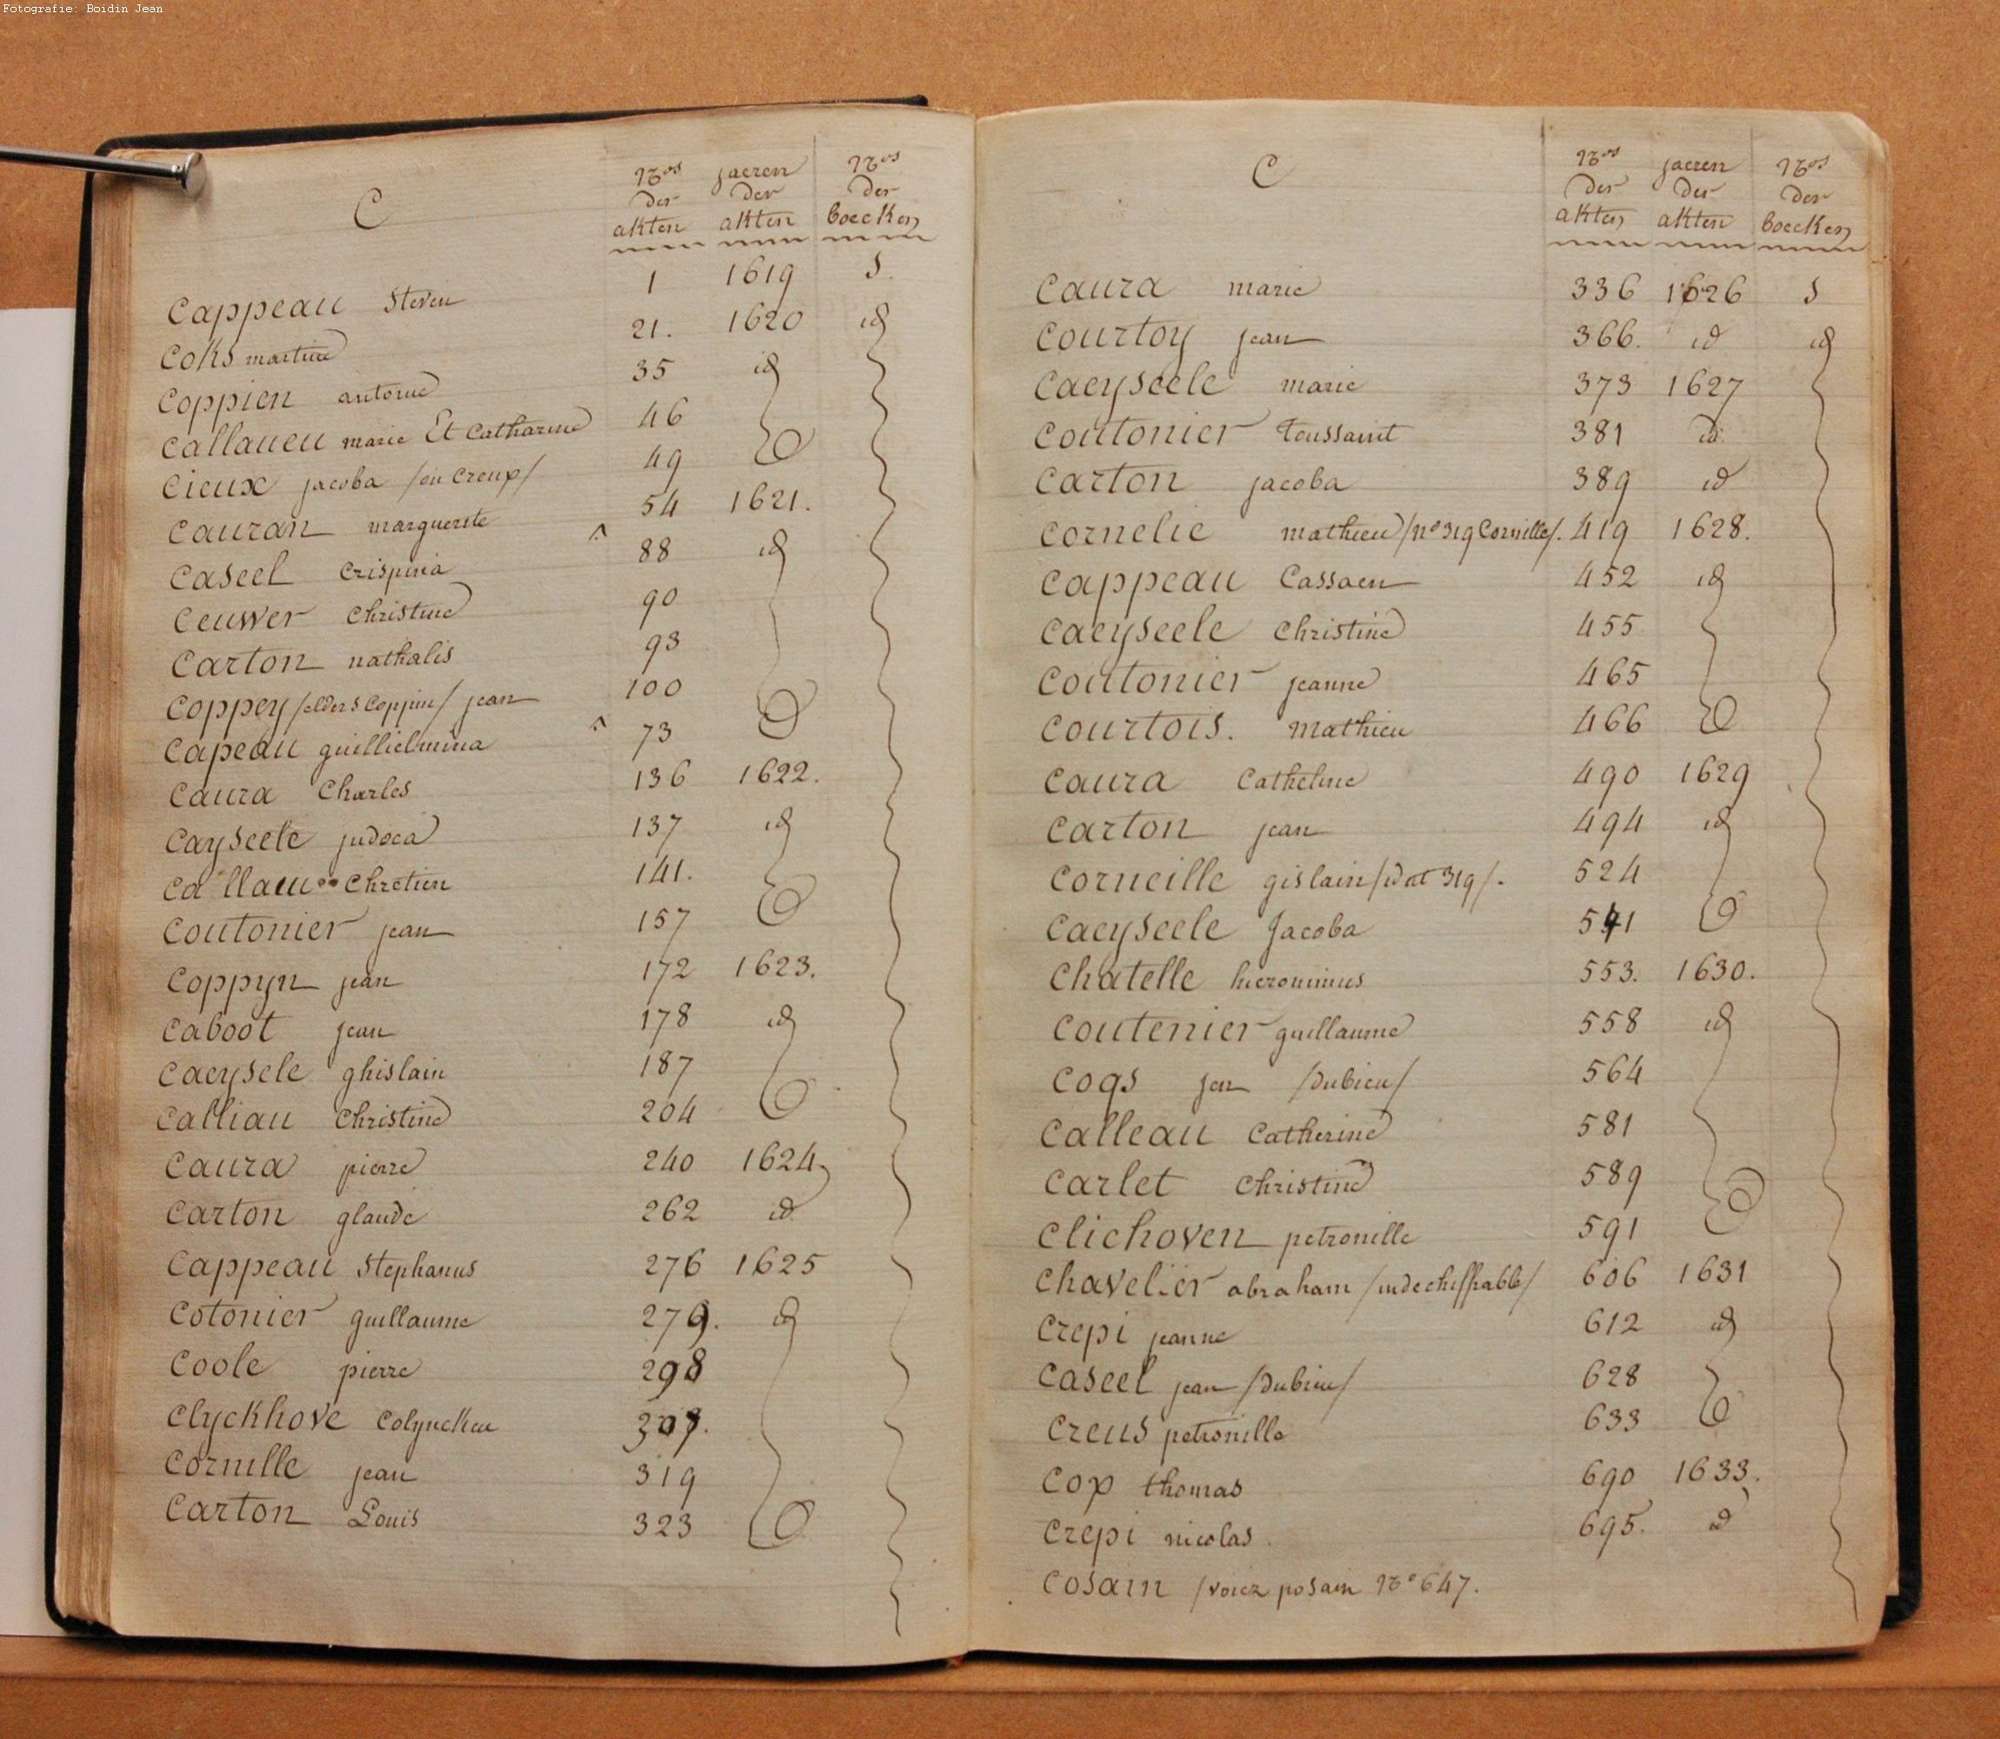 Fotografie: Boidin Jean
C
Nos der akten jaeren der akten Nos der boecken
Cappeau Steven 1 1619 S.
Coks martine 21. 1620 id
Coppien antoine 35 id
Callaueu marie Et Catharine 46
Cieux jacoba /ou Creux/ 49
Cauran marguerite 54 1621.
Caseel Crispinia 88 id
Ceuwer Christine 90
Carton nathalis 93
Coppey /elders Coppin/ jean 100
Capeau guillielmina 73
Caura Charles 136 1622.
Cayseele judoca 137 id
Chretien 141.
Coutonier jean 157
Coppyn jean 172 1623.
Caboot jean 178 id
Caeysele ghislain 187
Calliau Christine 204
Caura pierre 240 1624
Carton glaude 262 id
Cappeau Stephanus 276 1625
Cotonier guillaume 279. id
Coole pierre 298
Clyckhove Colyncken
Cornille jean 319
Carton Louis 323
C
Nos der akten jaeren der akten Nos der boecken
Caura marie 336 1626 S
Courtoy jean 366. id id
Caeyseele marie 373 1627
Coutonier Toussaint 381 id
Carton jacoba 389 id
Cornelie mathieu /no 319 Cornille/. 419 1628.
Cappeau Cassaen 452 id
Caeyseele Christine 455
Coutonier jeanne 465
Courtois. Mathieu 466
Caura Catheline 490 1629
Carton jean 494 id
Corneille gislain /id at 319/. 524
Caeyseele Jacoba 541
Chatelle hieronimus 553. 1630.
Coutenier guillaume 558 id
Coqs jan /dubieu/ 564
Calleau Catherine 581
Carlet Christine 589
Clichoven petronille 591
Chavelier abraham /indechiffrable/ 606 1631
Crepi jeanne 612 id
Caseel jean /dubieu/ 628
Creus petronille 633
Cop thomas 690 1633.
Crepi nicolas 695. id
Cosain /voiez posain No 647.